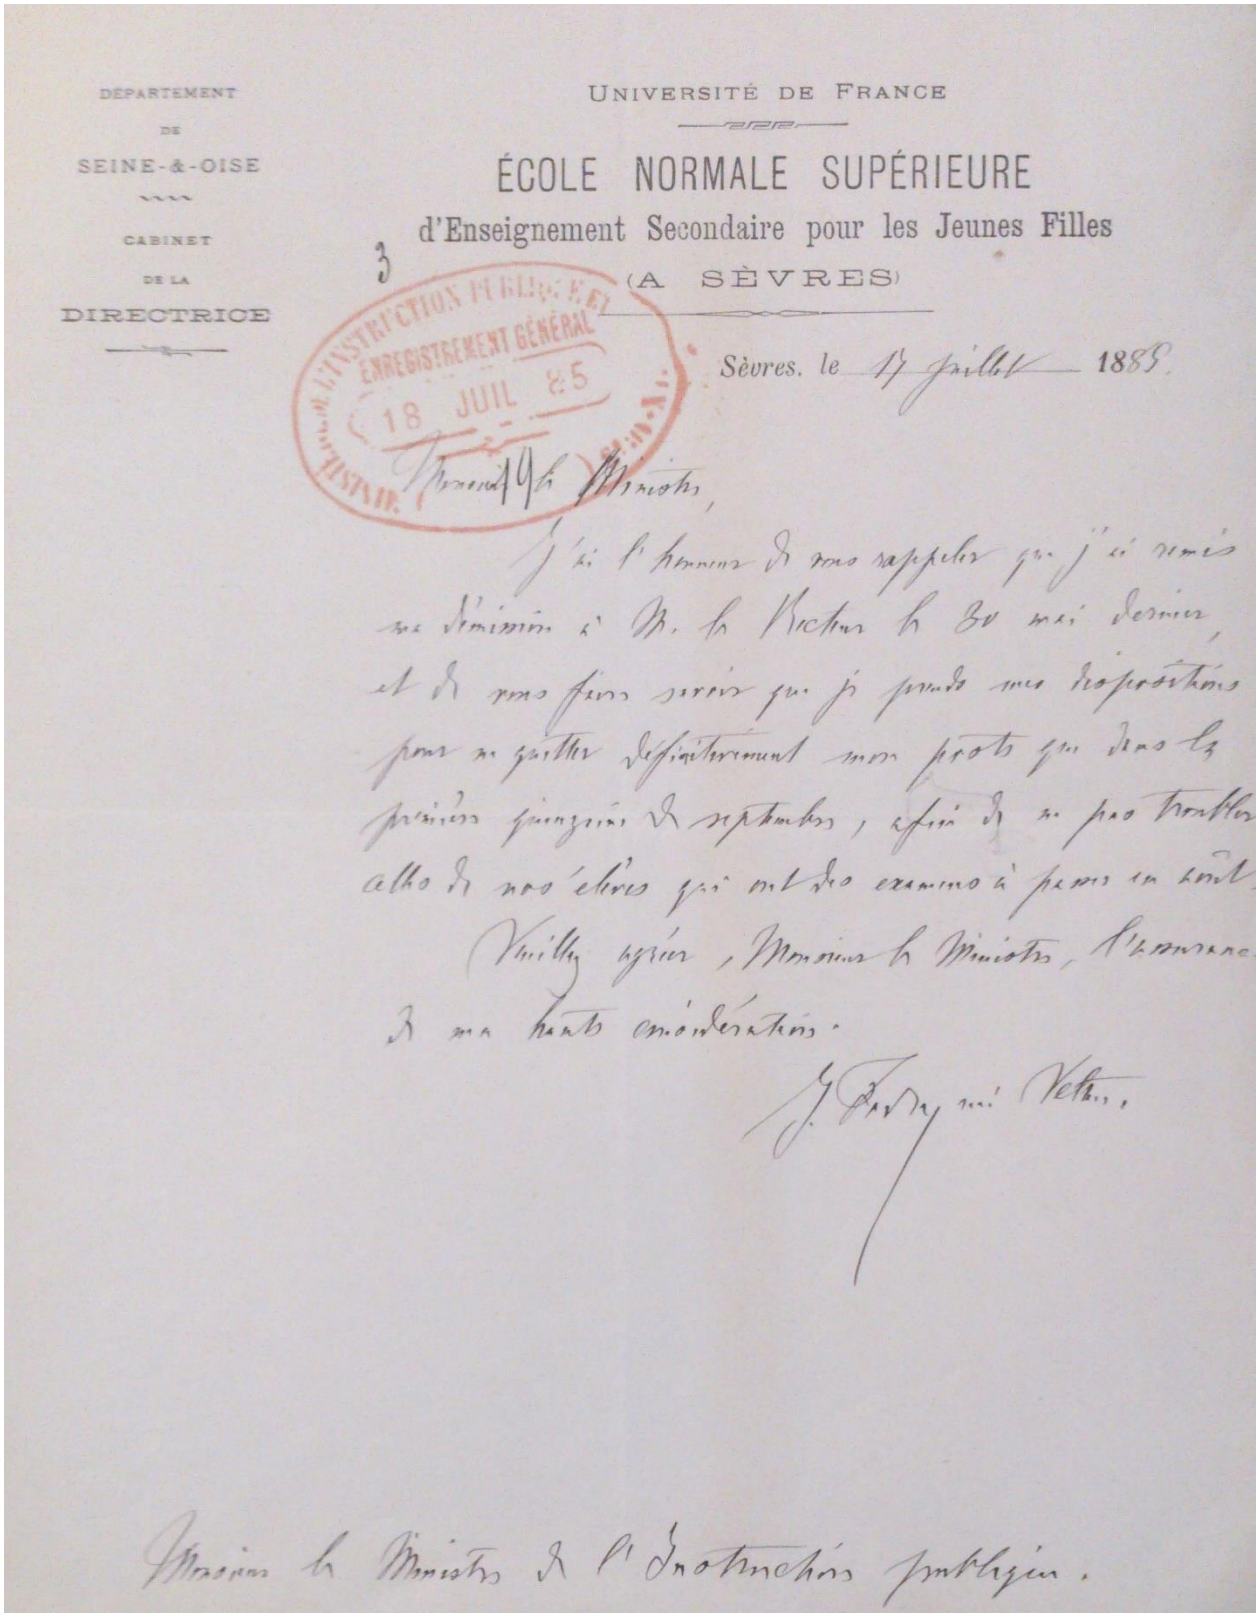 DÉPARTEMENT
DE
SEINE-&-OISE
CABINET
DE LA
DIRECTRICE
UNIVERSITÉ DE FRANCE
ÉCOLE NORMALE SUPÉRIEURE
d'Enseignement Secondaire pour les Jeunes Filles
(A SÈVRES)
3
MINISTÈRE DE L'INSTRUCTION PUBLIQUE ET
ENREGISTREMENT GÉNÉRAL
18 JUIL 85
Sèvres, le 17 juillet 1885.
Monsieur le Ministre,
J'ai l'honneur de vous rappeler que j'ai remis
ma démission à M. le Recteur le 30 mai dernier,
et de vous faire savoir que je prends mes dispositions
pour ne quitter définitivement mon poste que dans la
première quinzaine de septembre, afin de ne pas troubler
celles de nos élèves qui ont des examens à passer en août.
Veuillez agréer, Monsieur le Ministre, l'assurance
de ma haute considération.
J. Favre, née Velten.
Monsieur le Ministre de l'Instruction publique.